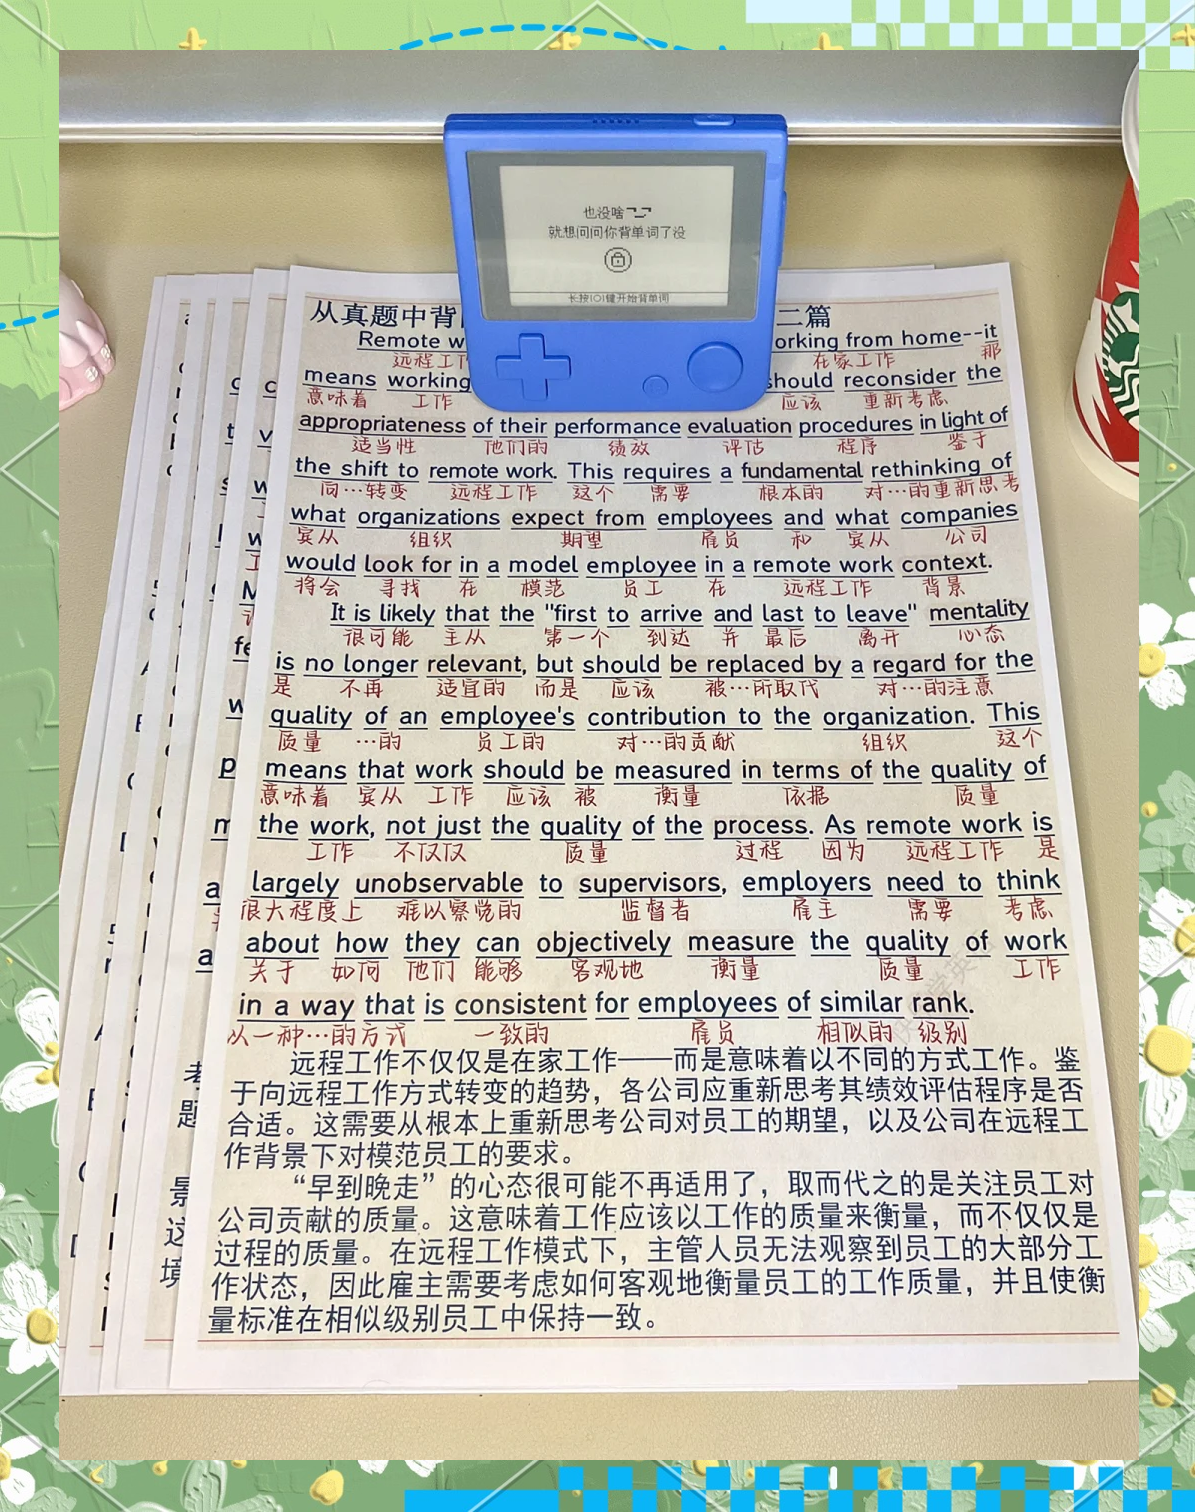 也没啥
就想问问你背单词了没
长按101键开始背单词
从真题中背 二篇
Remote w orking from home--it
远程工作 在家工作 那
means working should reconsider the
意味着 工作 应该 重新考虑
appropriateness of their performance evaluation procedures in light of
适当性 他们的 绩效 评估 程序 鉴于
the shift to remote work. This requires a fundamental rethinking of
向…转变 远程工作 这个 需要 根本的 对…的重新思考
what organizations expect from employees and what companies
宾从 组织 期望 雇员 和 宾从 公司
would look for in a model employee in a remote work context.
将会 寻找 在 模范 员工 在 远程工作 背景
It is likely that the "first to arrive and last to leave" mentality
很可能 主从 第一个 到达 并 最后 离开 心态
is no longer relevant, but should be replaced by a regard for the
是 不再 适宜的 而是 应该 被…所取代 对…的注意
quality of an employee's contribution to the organization. This
质量 …的 员工的 对…的贡献 组织 这个
means that work should be measured in terms of the quality of
意味着 宾从 工作 应该 被 衡量 依据 质量
the work, not just the quality of the process. As remote work is
工作 不仅仅 质量 过程 因为 远程工作 是
largely unobservable to supervisors, employers need to think
很大程度上 难以察觉的 监督者 雇主 需要 考虑
about how they can objectively measure the quality of work
关于 如何 他们 能够 客观地 衡量 质量 工作
in a way that is consistent for employees of similar rank.
以一种…的方式 一致的 雇员 相似的 级别
远程工作不仅仅是在家工作——而是意味着以不同的方式工作。鉴
于向远程工作方式转变的趋势，各公司应重新思考其绩效评估程序是否
合适。这需要从根本上重新思考公司对员工的期望，以及公司在远程工
作背景下对模范员工的要求。
“早到晚走”的心态很可能不再适用了，取而代之的是关注员工对
公司贡献的质量。这意味着工作应该以工作的质量来衡量，而不仅仅是
过程的质量。在远程工作模式下，主管人员无法观察到员工的大部分工
作状态，因此雇主需要考虑如何客观地衡量员工的工作质量，并且使衡
量标准在相似级别员工中保持一致。